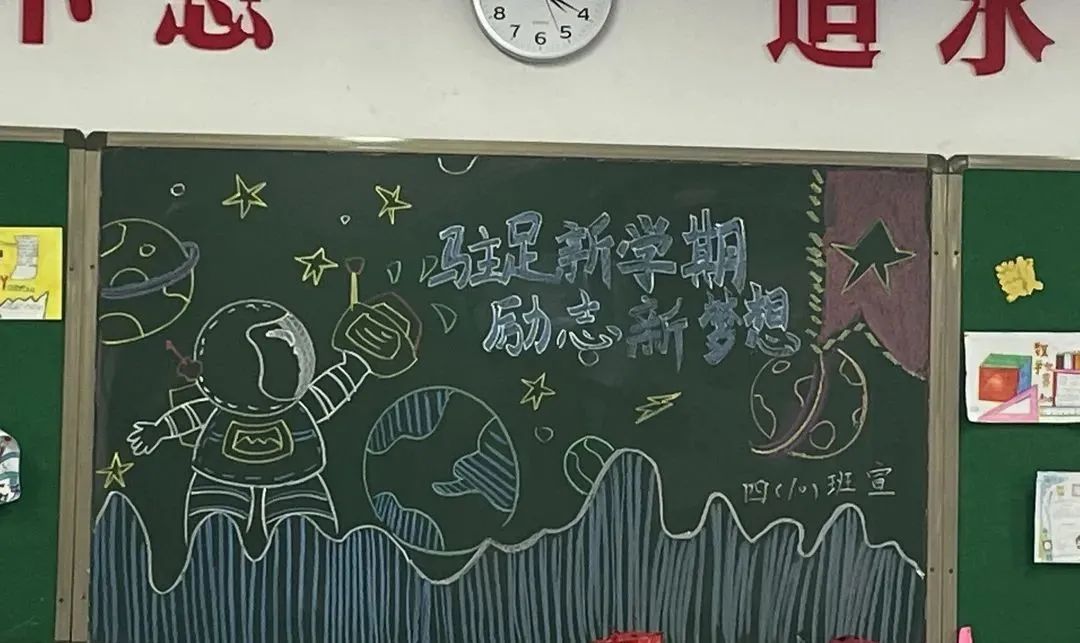 8 7 6 5 4
驻足新学期
励志新梦想
四(10)班宣
数学